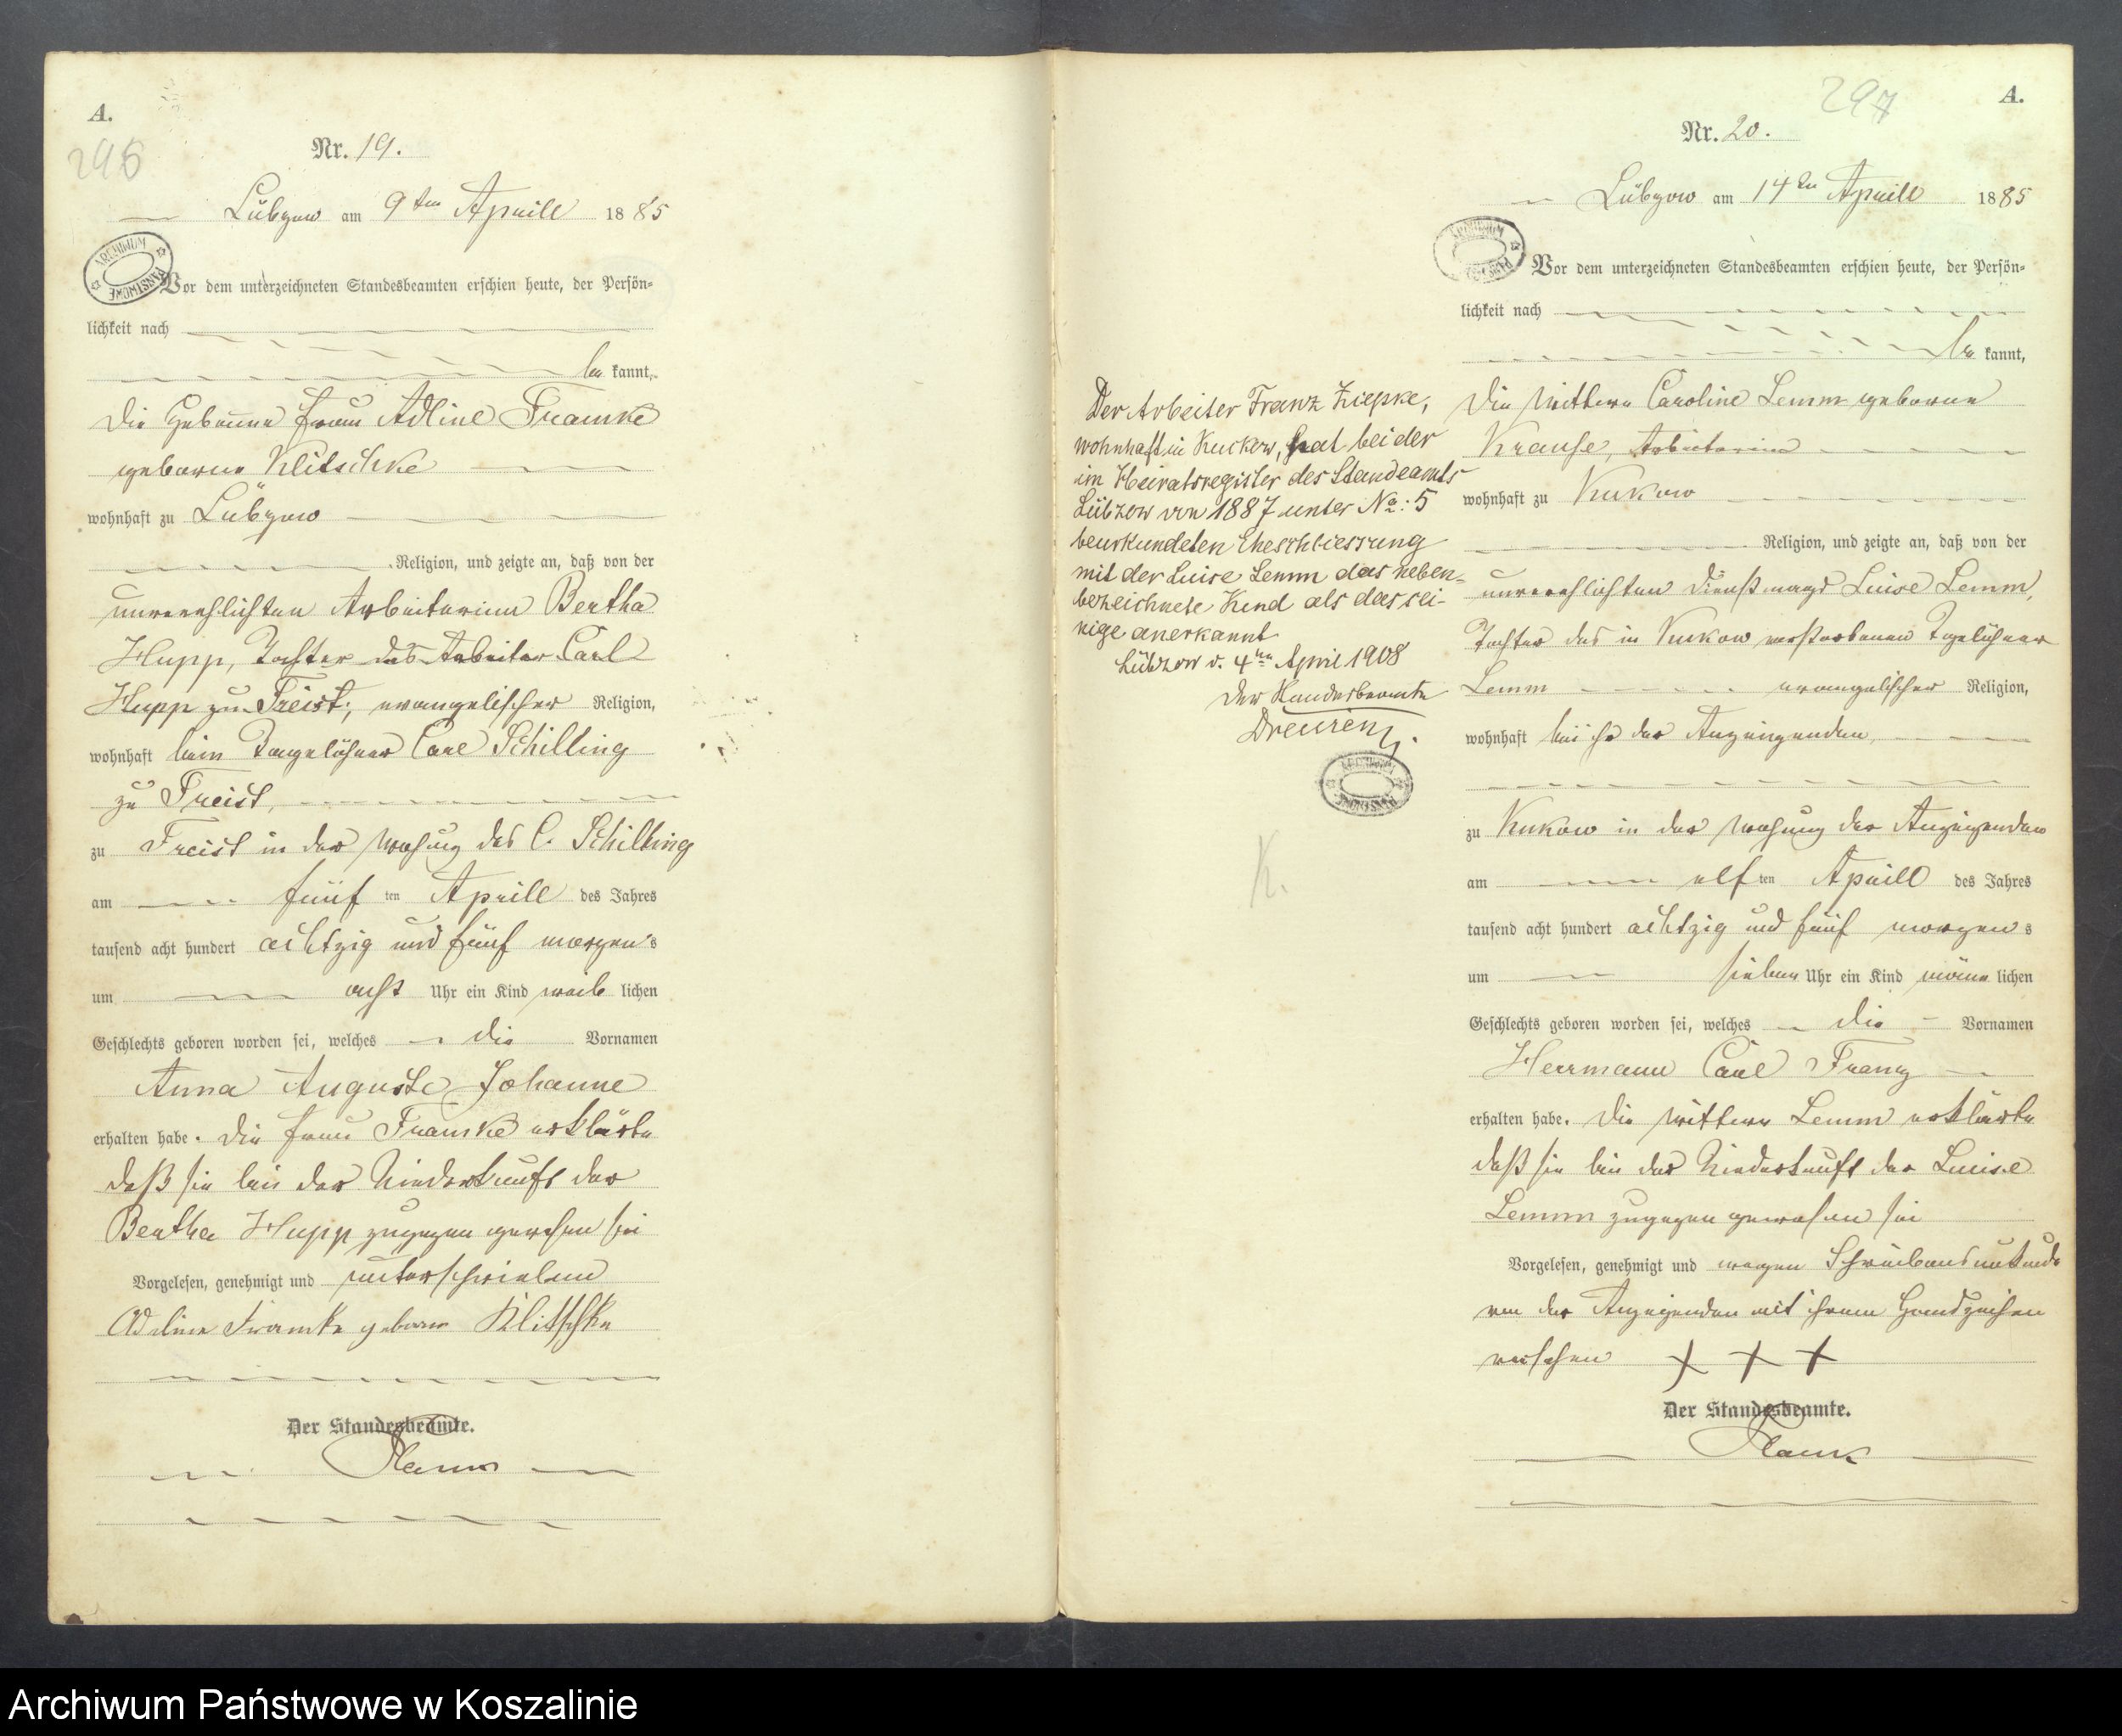 A.
296
Nr. 19.
Lübzow am 9ten Aprill 1885
ARCHIWUM PAŃSTWOWE
Vor dem unterzeichneten Standesbeamten erschien heute, der Persön=
lichkeit nach
be kannt,
die Hebamme Frau Adline Framke
geborne Klitschke
wohnhaft zu Lübzow
Religion, und zeigte an, daß von der
unverehlichten Arbeiterinn Bertha
Hupp, Tochter des Arbeiter Carl
Hupp zu Freist, evangelischer Religion,
wohnhaft beim Tagelöhner Carl Schilling
zu Freist,
zu Freist in der Wohung des C. Schilling
am fünf ten Aprill des Jahres
tausend acht hundert achtzig und fünf morgens
um acht Uhr ein Kind weib lichen
Geschlechts geboren worden sei, welches die Vornamen
Anna Auguste Johanne
erhalten habe. die Frau Framke erklärte
daß sie bei der Niederkunft der
Bertha Hupp zugegen gewesen sei
Vorgelesen, genehmigt und unterschrieben
Adeline Framke geborne Klitschke
Der Standesbeamte.
A.
297
Nr. 20.
Lübzow am 14ten Aprill 1885
ARCHIWUM PAŃSTWOWE
Vor dem unterzeichneten Standesbeamten erschien heute, der Persön=
lichkeit nach
be kannt,
die Wittwe Caroline Lemm geborne
Krause, Arbeiterinn
wohnhaft zu Kukow
Religion, und zeigte an, daß von der
unverehlichten Dienstmagd Luise Lemm,
Tochter des in Kukow verstorbenen Tagelöhner
Lemm evangelischer Religion,
wohnhaft bei ihr der Anzeigenden,
zu Kukow in der Wohung der Anzeigenden
am elf ten Aprill des Jahres
tausend acht hundert achtzig und fünf morgens
um sieben Uhr ein Kind männ lichen
Geschlechts geboren worden sei, welches die Vornamen
Herrmann Carl Franz
erhalten habe. die Wittwe Lemm erklärte
daß sie bei der Niederkunft der Luise
Lemm zugegen gewesen sei
Vorgelesen, genehmigt und wegen Schreibensunkunde
von der Anzeigenden mit ihrem Handzeichen
versehen + + +
Der Standesbeamte.
Der Arbeiter Franz Ziepke,
wohnhaft in Kuckow, hat bei der
im Heiratsregister des Standeamts
Lübzow von 1887 unter No: 5
beurkundeten Eheschliessung
mit der Luise Lemm das neben-
bezeichnete Kind als das sei-
nige anerkannt
Lübzow d. 4ten April 1908
Der Standesbeamte
ARCHIWUM PAŃSTWOWE
K.
Archiwum Państwowe w Koszalinie